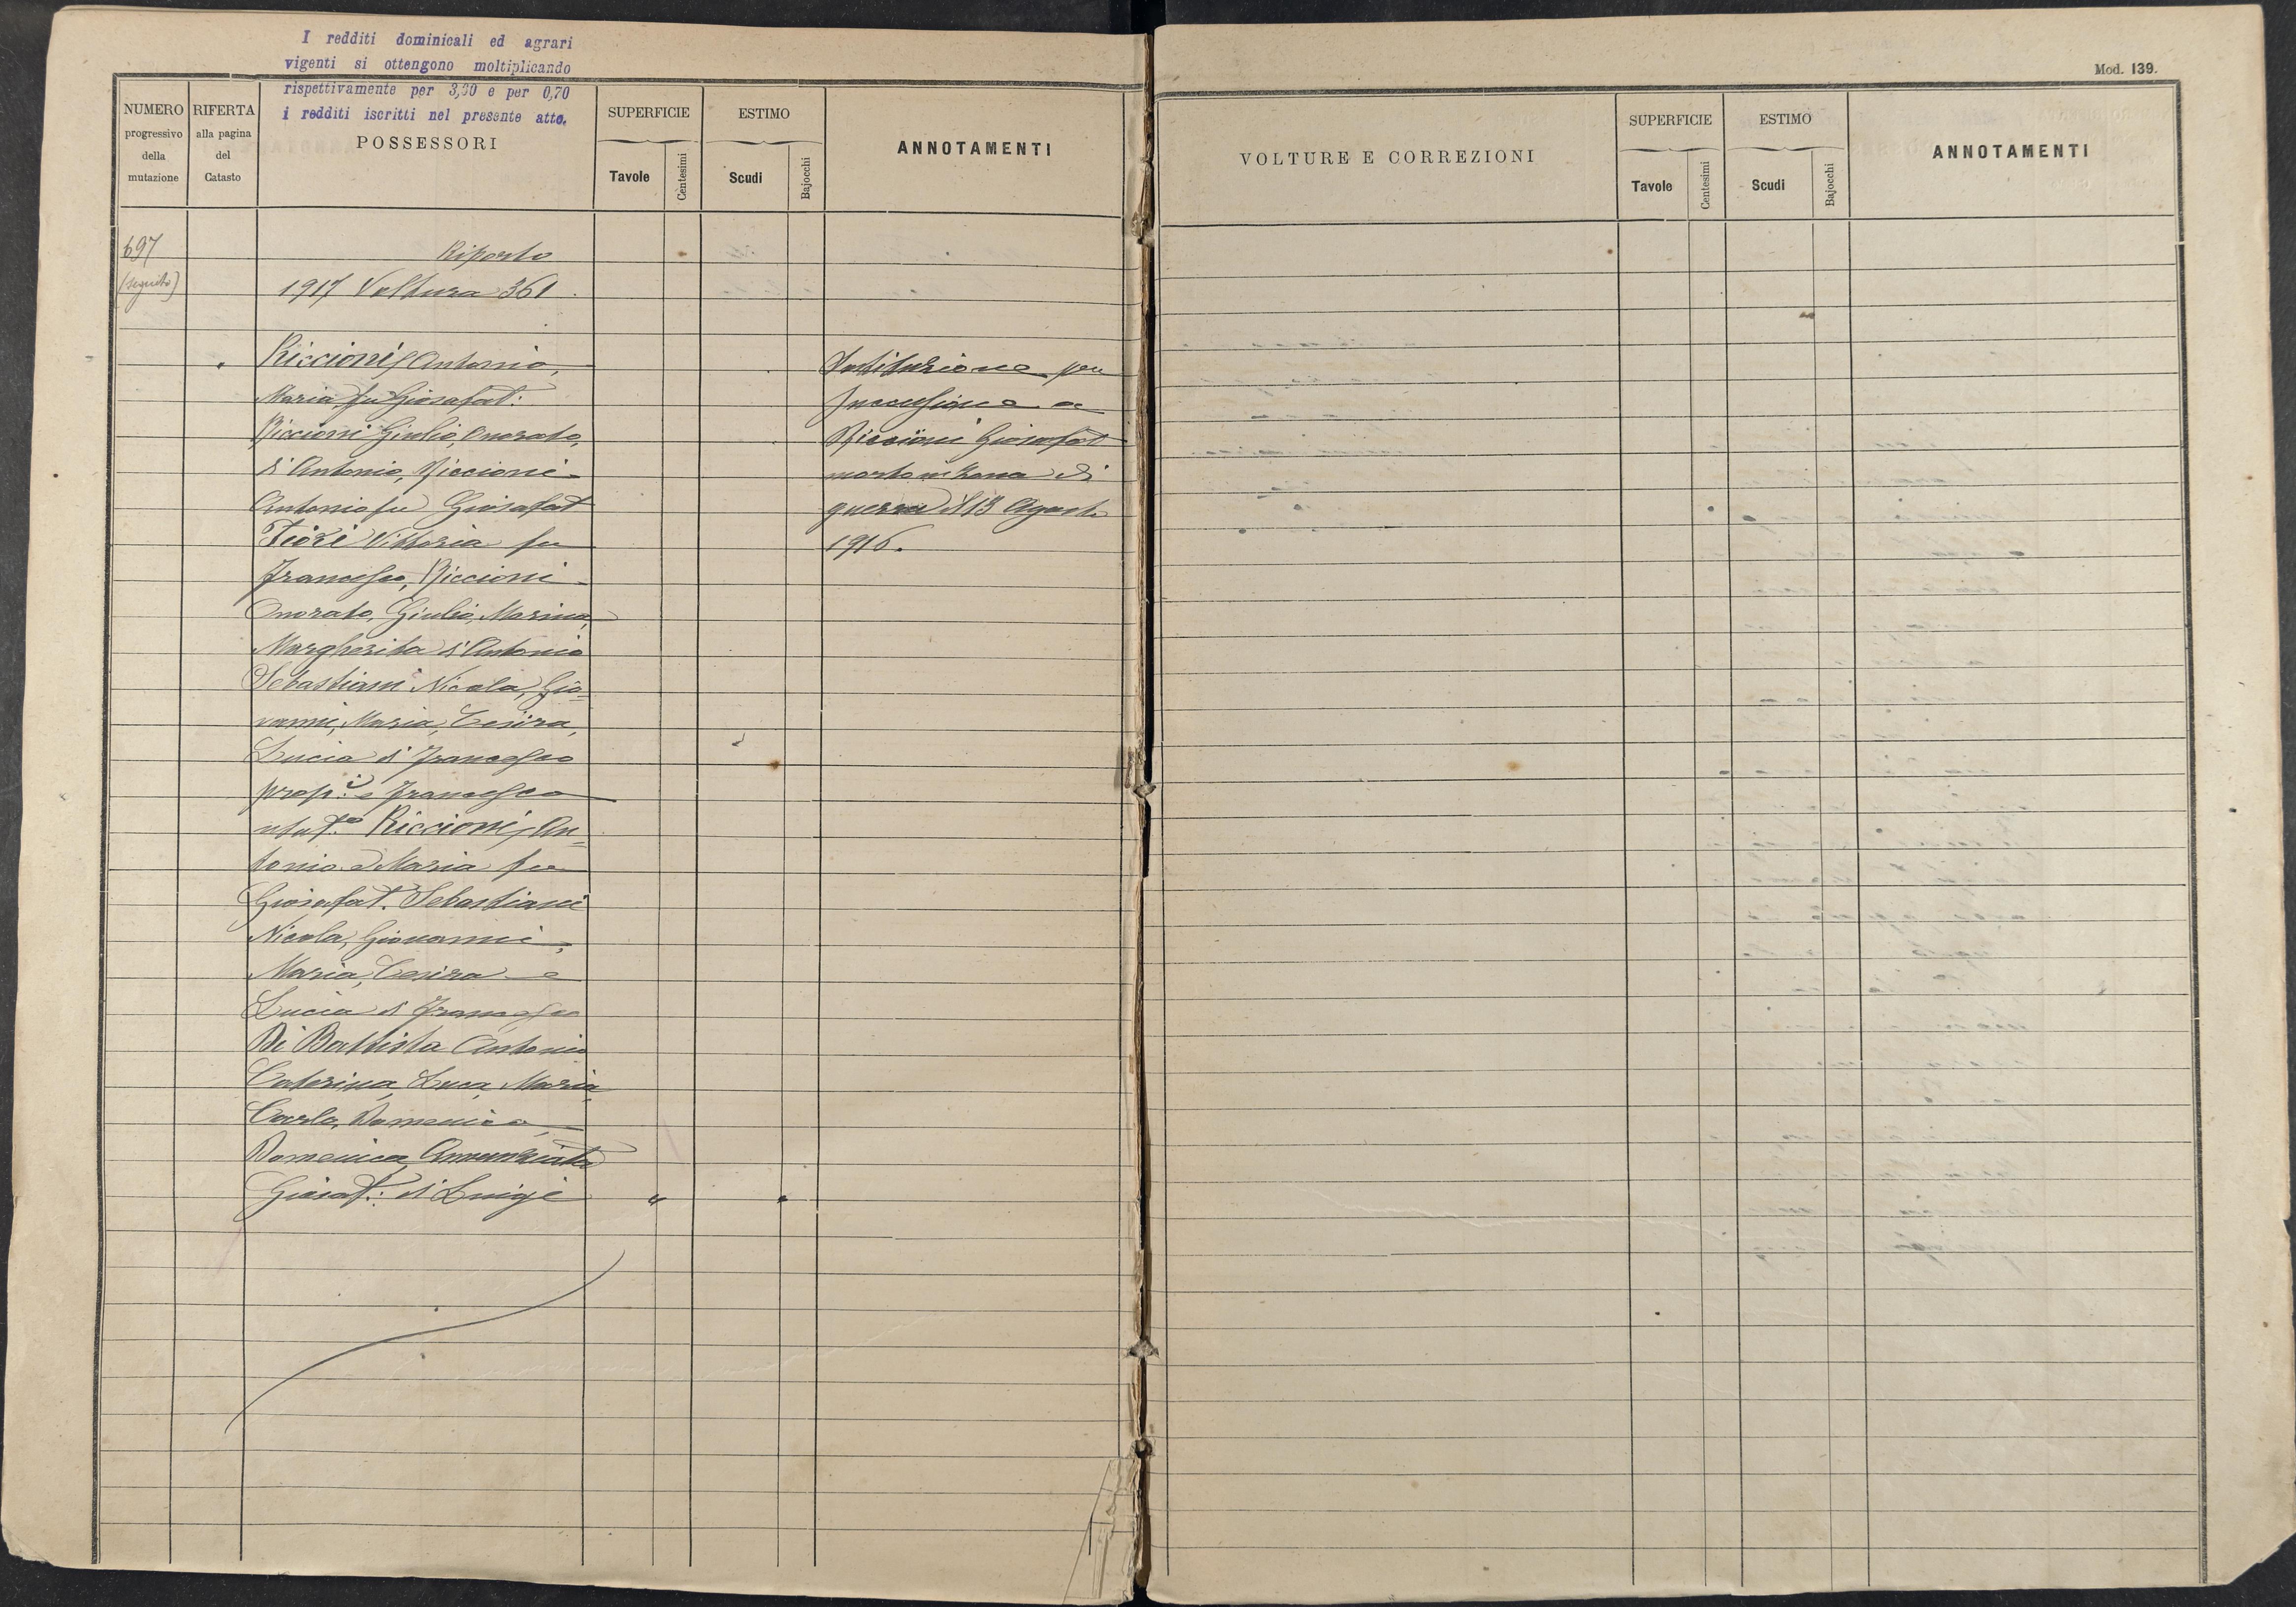 I redditi dominicali ed agrari
vigenti si ottengono moltiplicando
rispettivamente per 3,30 e per 0,70
i redditi iscritti nel presente atto.
Mod. 139.
NUMERO
progressivo
della
mutazione
RIFERTA
alla pagina
del
Catasto
POSSESSORI
SUPERFICIE
Tavole
Centesimi
ESTIMO
Scudi
Bajocchi
ANNOTAMENTI
VOLTURE E CORREZIONI
SUPERFICIE
Tavole
Centesimi
ESTIMO
Scudi
Bajocchi
ANNOTAMENTI
697
(seguito)
Riporto
1917 Voltura 361
Riccioni Antonio,
Maria fu Giosafat:
Riccioni Giulio, Onorato,
di Antonio, Riccioni
Antonio fu Giosafat
Fiori Vittoria fu
Francesco, Riccioni
Onorato, Giulio, Marina,
Margherita d'Antonio
Sebastiani Nicola, Gio=
vanni, Maria, Cesira,
Lucia di Francesco
prop.i e Francesco
usuf.o Riccioni An=
tonio e Maria fu
Giosafat. Sebastiani
Nicola, Giovanni,
Maria, Cesira e
Lucia di Francesco
Di Battista Antonio
Caterina, Luca, Maria,
Carlo, Domenico,
Domenica, Annunziata
Giosaf.: di Luigi
"
"
Sostituzione per
successione a
Riccioni Giosafat
morto in zona di
guerra il 13 Agosto
1916.